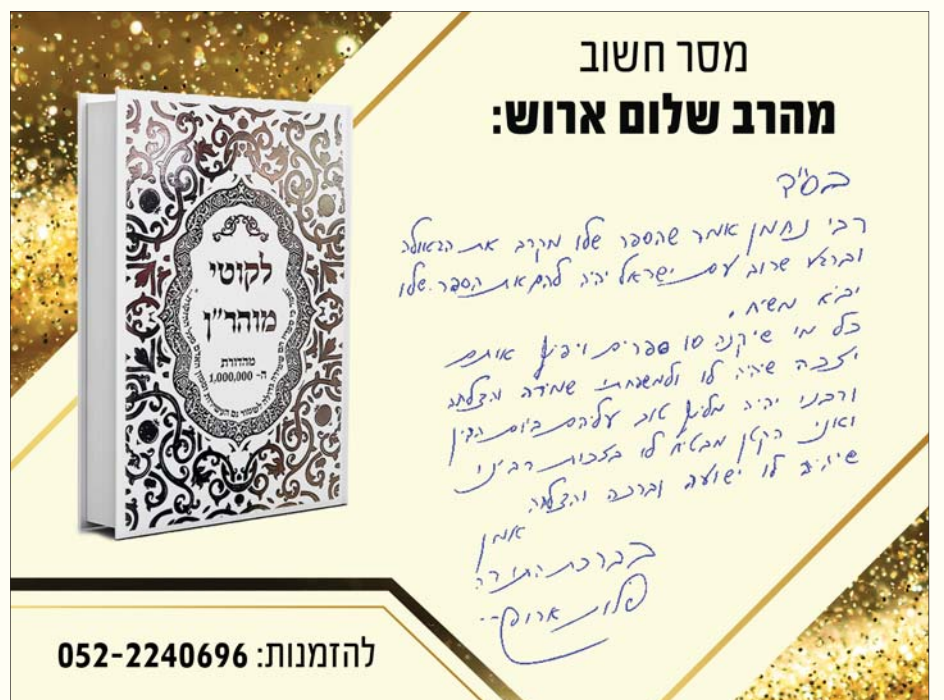 מסר חשוב
מהרב שלום ארוש:
בס"ד
רבי נחמן אמר שהספר שלו מקרב את הגאולה
וברגע שרוב עם ישראל יהיה להם את הספר שלו
יבא משיח.
כל מי שיקנה ספרים ויפיץ אותם
יזכה שיהיה לו ולמשפחתו שמירה והצלחה
ורבינו יהיה מליץ טוב עליהם ביום הדין
ואני הקטן מבטיח לו בזכות רבינו
שיהיה לו ישועה וברכה והצלחה
אמן
בברכת התורה
שלום ארוש
לקוטי
מוהר"ן
מהדורת
ה- 1,000,000
להזמנות: 052-2240696